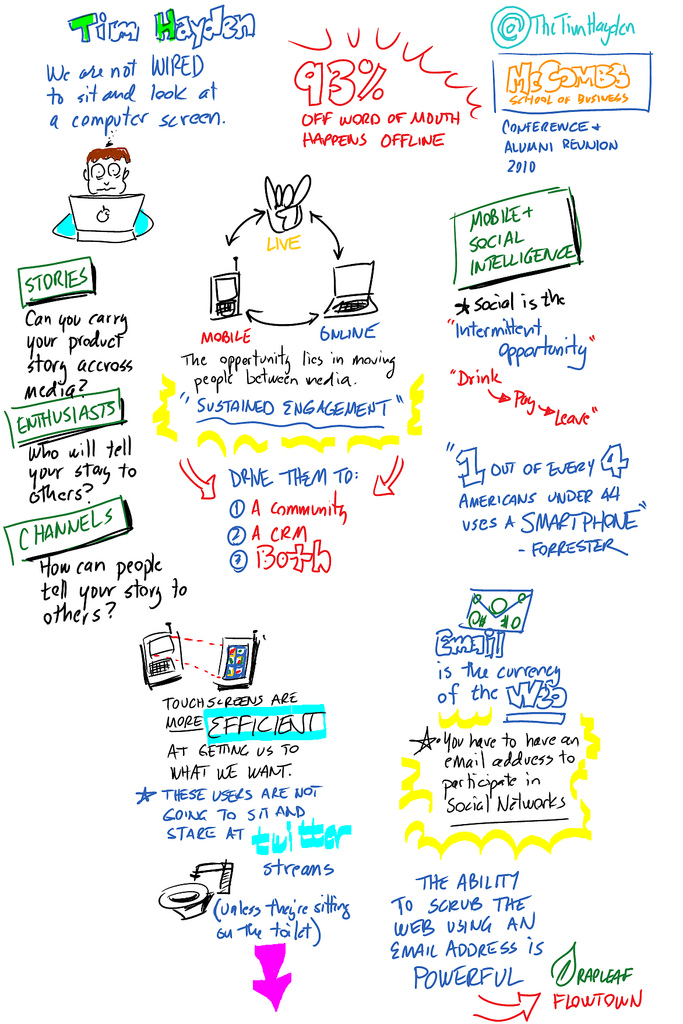 Tim Hayden
@TheTimHayden
We are not WIRED
to sit and look at
a computer screen.
93%
OFF WORD OF MOUTH
HAPPENS OFFLINE
McCOMBS
SCHOOL OF BUSINESS
CONFERENCE +
ALUMNI REUNION
2010
LIVE
MOBILE
ONLINE
The opportunity lies in moving
people between media.
"SUSTAINED ENGAGEMENT"
DRIVE THEM TO:
1 A community
2 A CRM
3 Both
STORIES
Can you carry
your product
story accross
media?
ENTHUSIASTS
Who will tell
your story to
others?
CHANNELS
How can people
tell your story to
others?
MOBILE +
SOCIAL
INTELLIGENCE
Social is the
"Intermittent
opportunity"
"Drink
Pay
Leave"
"1 OUT OF EVERY 4
AMERICANS UNDER 44
USES A SMARTPHONE"
- FORRESTER
TOUCHSCREENS ARE
MORE EFFICIENT
AT GETTING US TO
WHAT WE WANT.
THESE USERS ARE NOT
GOING TO SIT AND
STARE AT twitter
streams
(unless they're sitting
on the toilet)
Email
is the currency
of the Web
You have to have an
email address to
participate in
Social Networks
THE ABILITY
TO SCRUB THE
WEB USING AN
EMAIL ADDRESS IS
POWERFUL
RAPLEAF
FLOWTOWN